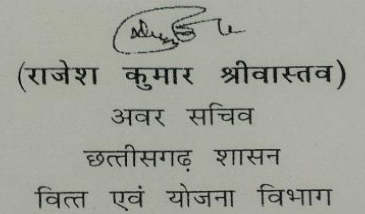 (राजेश कुमार श्रीवास्तव)
अवर सचिव
छत्तीसगढ़ शासन
वित्त एवं योजना विभाग